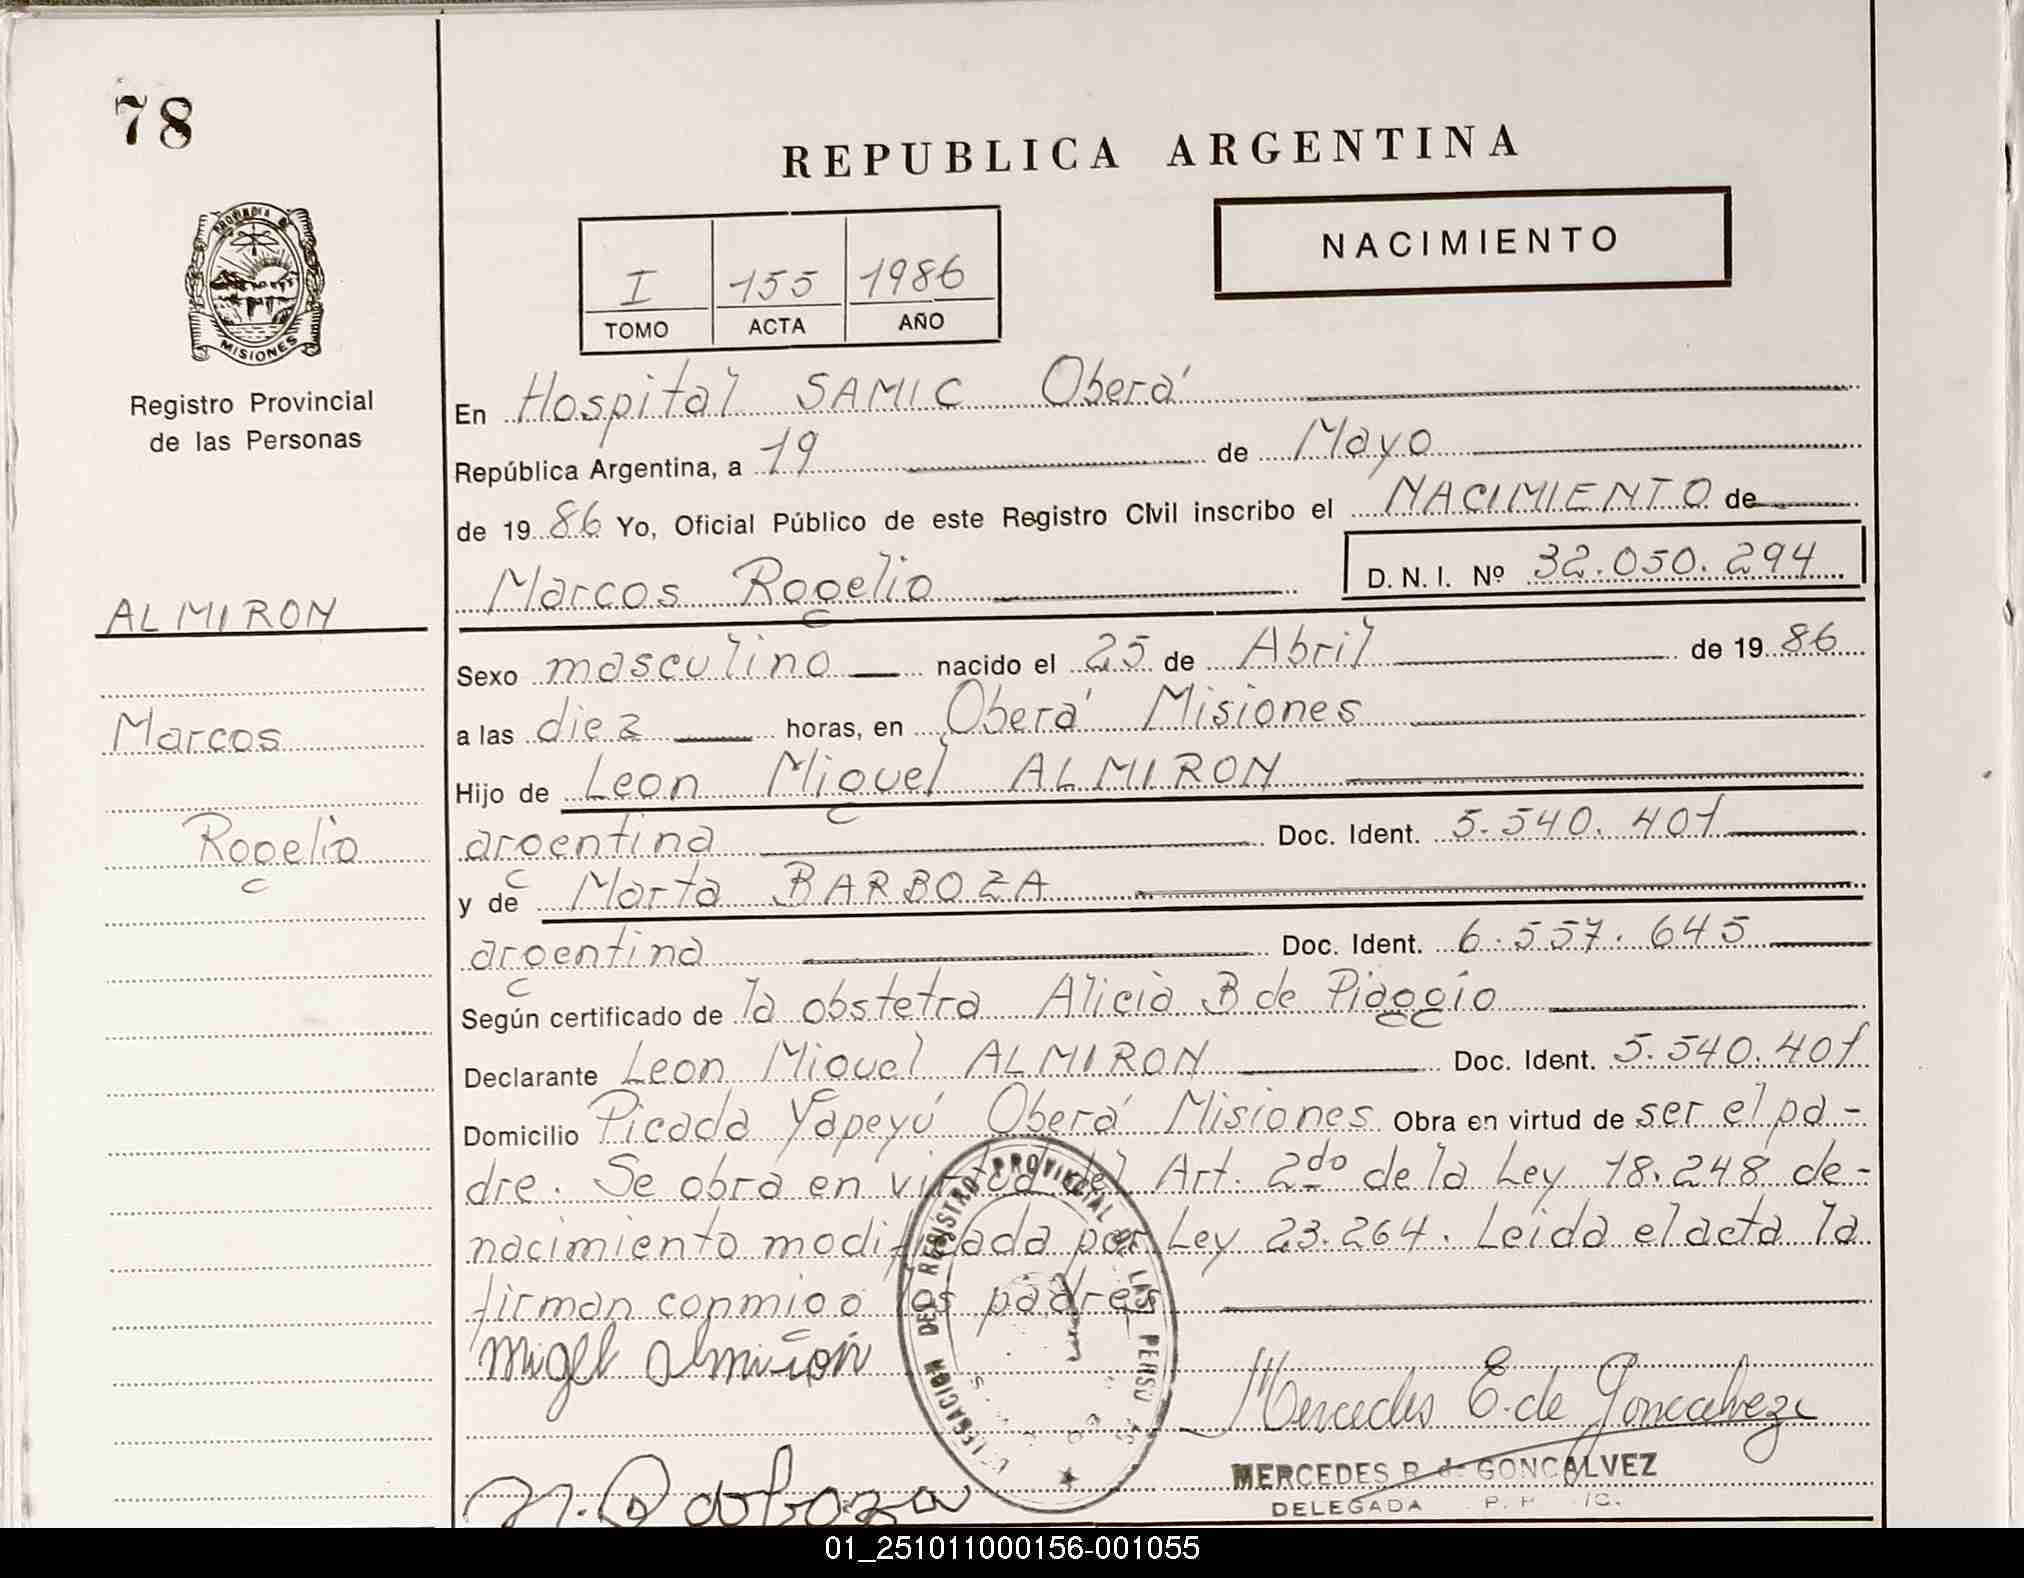 78
REPUBLICA ARGENTINA
NACIMIENTO
I 155 1986
TOMO ACTA AÑO
PROVINCIA DE
MISIONES
Registro Provincial
de las Personas
ALMIRON
Marcos
Rogelio
En Hospital SAMIC Oberá
República Argentina, a 19 de Mayo
de 1986 Yo, Oficial Público de este Registro Civil inscribo el NACIMIENTO de
Marcos Rogelio D. N. I. Nº 32.050.294
Sexo masculino nacido el 25 de Abril de 1986
a las diez horas, en Oberá Misiones
Hijo de Leon Miguel ALMIRON
argentina Doc. Ident. 5.540.401
y de Marta BARBOZA
argentina Doc. Ident. 6.557.645
Según certificado de la obstetra Alicia B de Piaggio
Declarante Leon Miguel ALMIRON Doc. Ident. 5.540.401
Domicilio Picada Yapeyú Oberá Misiones Obra en virtud de ser el pa-
dre. Se obra en virtud del Art. 2do de la Ley 18.248 de-
nacimiento modificada por Ley 23.264. Leida el acta la
firman conmigo los padres
Migel almiron
Mercedes E. de Goncalvez
DELEGACION DEL REGISTRO PROVINCIAL DE LAS PERSO
MERCEDES R. de GONCALVEZ
DELEGADA
01_251011000156-001055